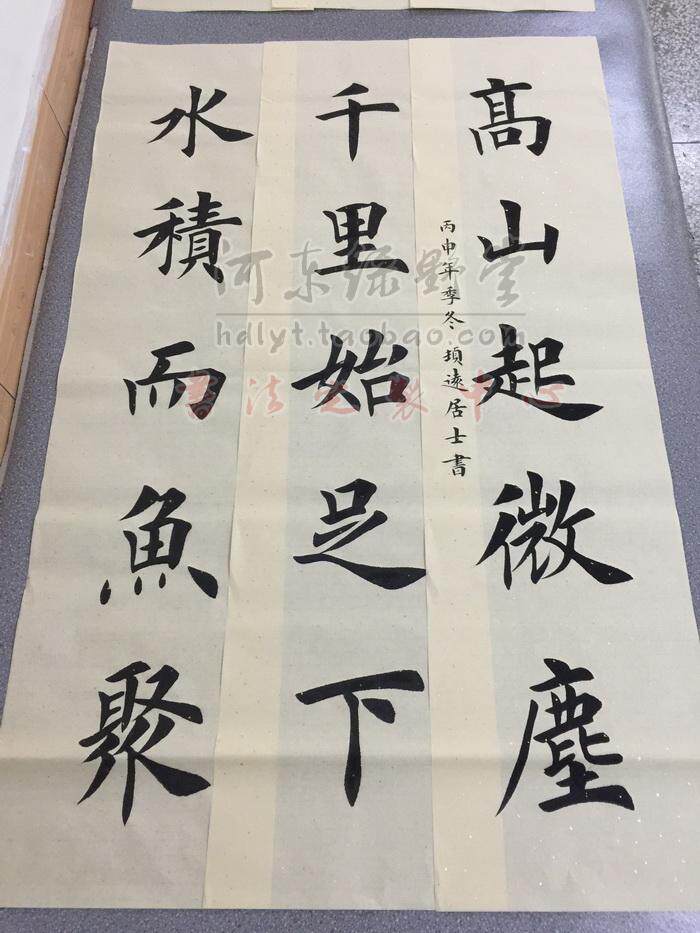 髙山起微塵
丙申年季冬 遠居士書
千里始足下
水積而魚聚
河东绿野堂
hdlyt.taobao.com
书法定製中心